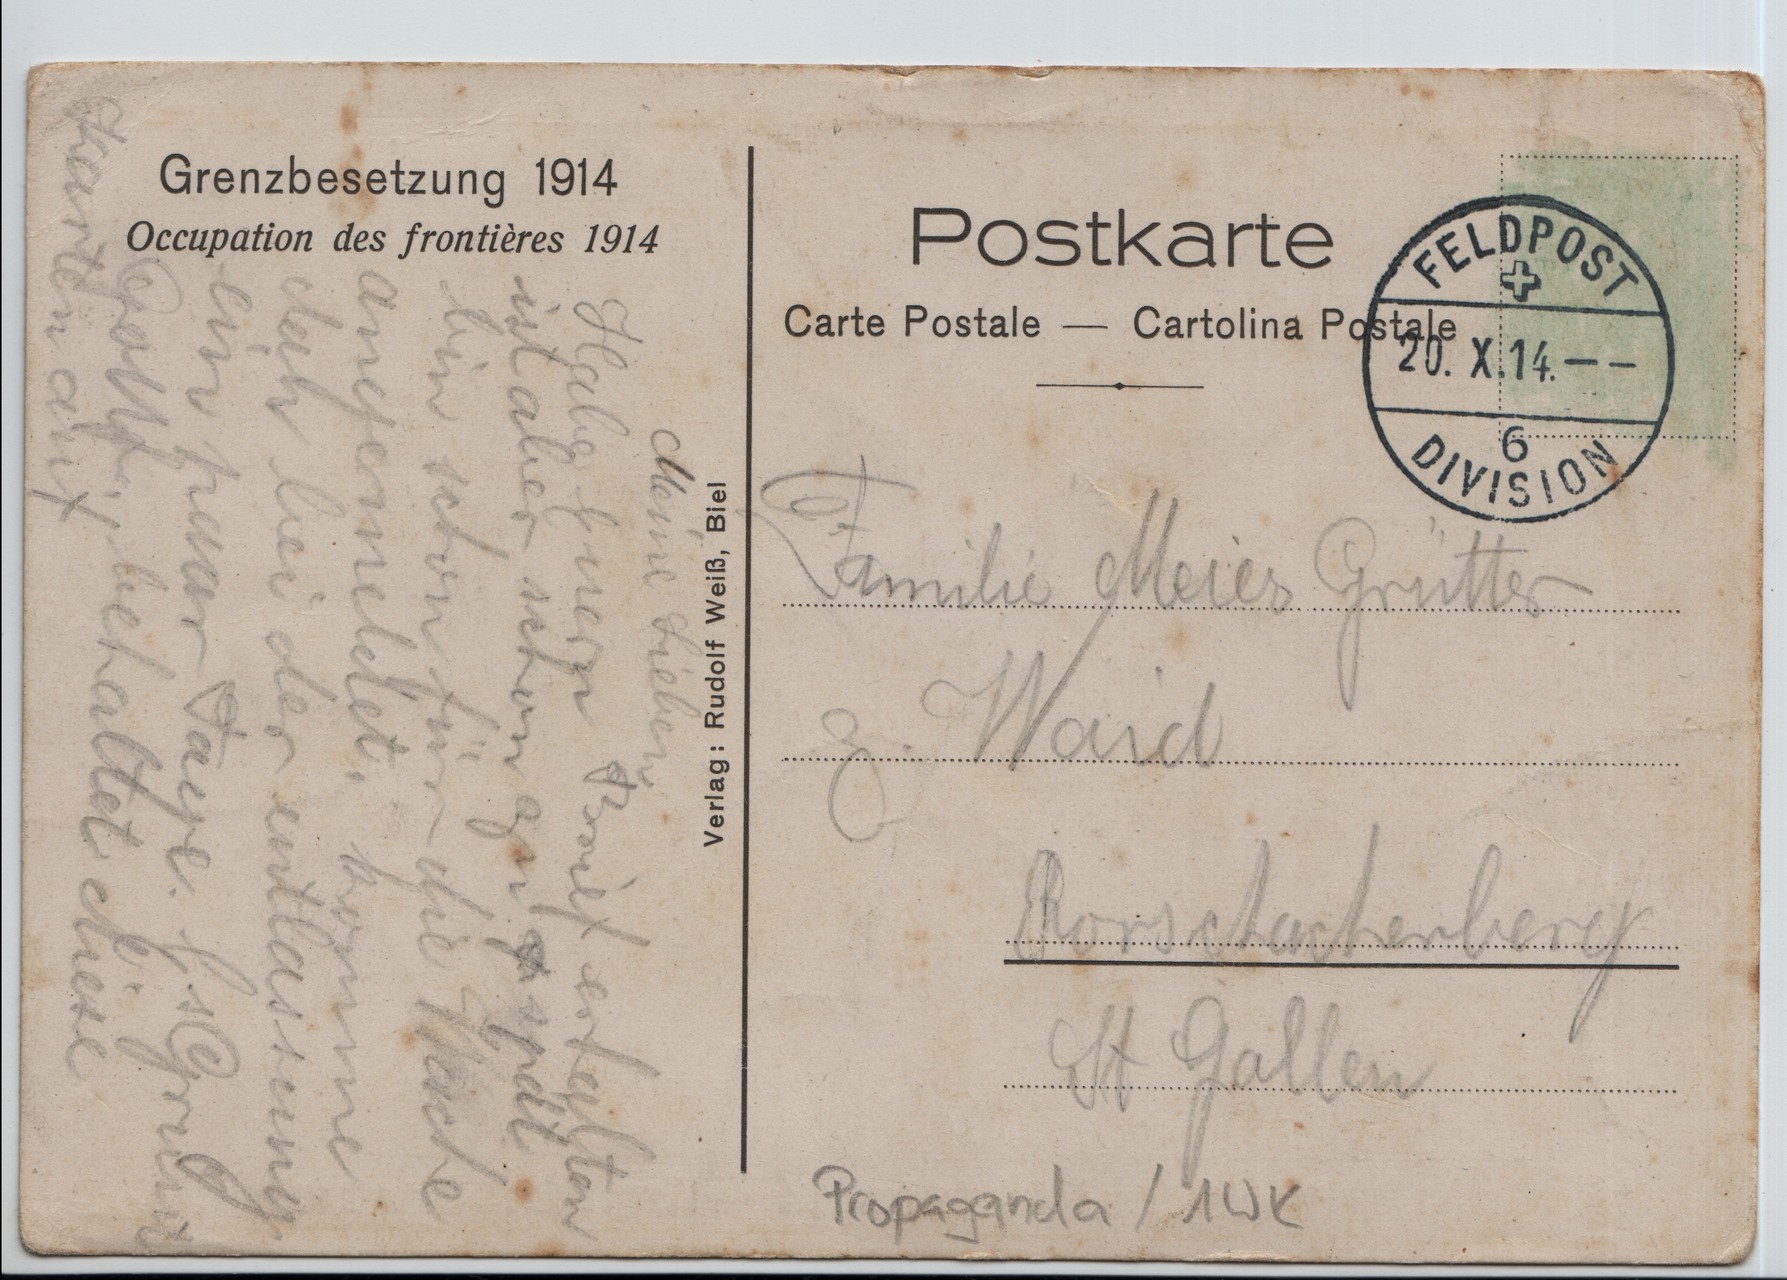 Grenzbesetzung 1914
Occupation des frontières 1914
Meine Lieben
Habe Euern Brief erhalten
ist aber schon zu spät
bin schon für die Woche
angemeldet, komme
dah bei der entlassung
ein paar Tage. Es Grüsst
behaltet diese
Karten auf
Verlag: Rudolf Weiß, Biel
Postkarte
Carte Postale — Cartolina Postale
FELDPOST
20. X.14.——
6
DIVISION
Familie Meier Grütter
z. Waid
Rorschacherberg
St Gallen
Propaganda / 1WK